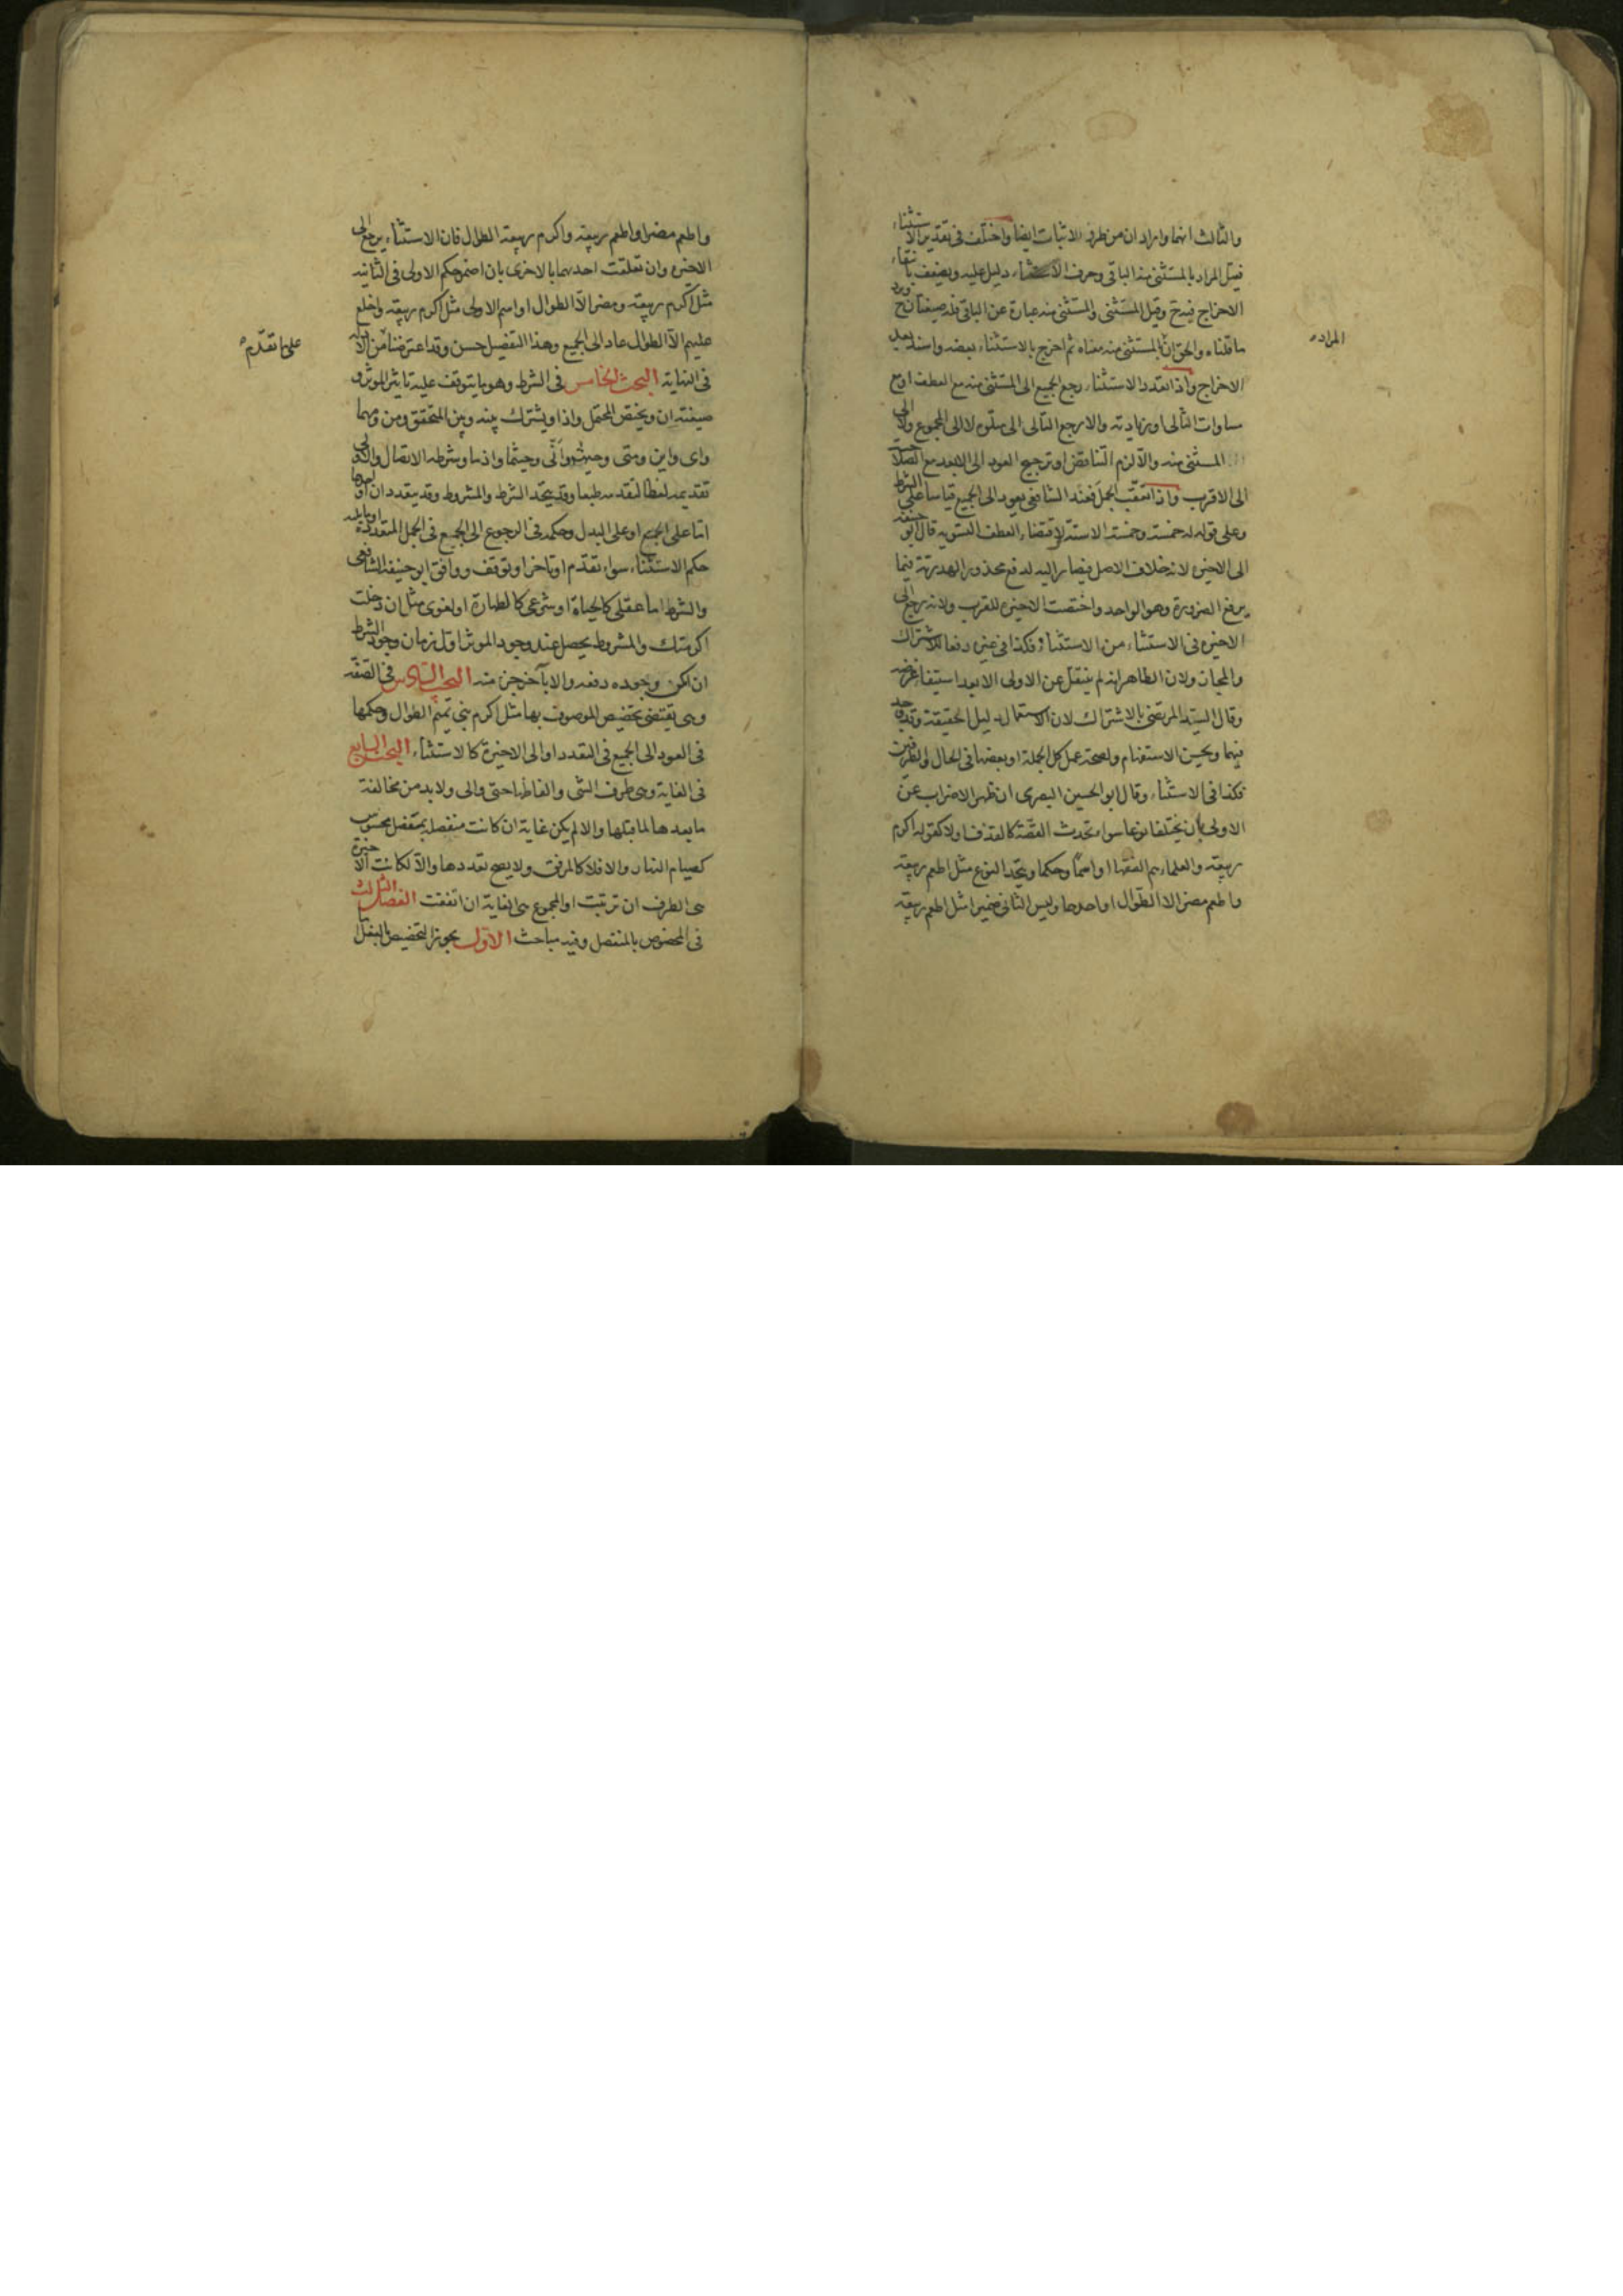 والثالث انهما وامراد ان من طرف الاثبات ايضا واختلف فى تقدير الاستثناء
فقيل المراد بالمستثنى منه الباقى وحرف الاستثناء دليل عليه ويضعف بانتفاء
الاخراج فيه ح وقيل المستثنى والمستثنى منه عبارة عن الباقى فله صيغتان ح ورد
ما قلناه والحق ان المستثنى منه معناه ثم اخرج بالاستثناء بعضه واسند بعد
المراد
الاخراج واذا تعدد الاستثناء رجع الجميع الى المستثنى منه مع العطف او مع
مساوات التالى او زيادته والا رجع التالى الى متلوه لا الى المجموع ولا الى
المستثنى منه والا لزم التناقض او ترجيح العود الى الابعد مع الصلاحية
الى الاقرب واذا تعقب الجمل فعند الشافعى يعود الى الجميع قياسا على الشرط
وعلى قوله له خمسة وخمسة الا ستة لاقتضاء العطف التسويه قال ابو حنيفة
الى الاخيرة لانه خلاف الاصل فيصار اليه لدفع محذور الهدرية فيما
يرفع الضرورة وهو الواحد واختصت الاخيرة للقرب ولانه يرجع الى
الاخيرة فى الاستثناء من الاستثناء فكذا فى غيره دفعا للاشتراك
والمجاز ولان الظاهر انه لم ينتقل عن الاولى الا بعد استيفاء غرضه
وقال السيد المرتضى بالاشتراك لان الاستعمال دليل الحقيقة وقد وجد
فيهما ويحسن الاستفهام ولصحة عمل كل الجملة او بعضها فى الحال والظرفين
فكذا فى الاستثناء وقال ابو الحسين البصرى ان ظهر الاضراب عن
الاولى بان يختلفا نوعا سواء اتحدت القصة كالقذف او لا كقوله اكرم
ربيعة والعلماء هم الفقها او اسما وحكما ويتحد النوع مثل اطعم ربيعة
واطعم مضر الا الطوال او احدهما وليس الثانى ضميرا مثل اطعم ربيعة
واطعم مضر او اطعم ربيعة واكرم ربيعة الطوال فان الاستثناء يرجع الى
الاخيرة وان تعلقت احديهما بالاخرى بان اضمر حكم الاولى فى الثانية
مثل اكرم ربيعة ومضر الا الطوال او اسم الاولى مثل اكرم ربيعة واخلع
عليهم الا الطوال عاد الى الجميع وهذا التفصيل حسن وقد اعترضنا من الادلة
على ما تقدم
فى النهاية البحث الخامس فى الشرط وهو ما يتوقف عليه تاثير الموثر و
صيغته ان ويختص المحتمل واذا ويشترك بينه وبين المتحقق ومن ومهما
واى واين ومتى وحيث وانى وحيثما واذما وشرطه الاتصال والاولى
تقديمه لفظا لتقدمه طبعا وقد يتحد الشرط والمشروط وقد يتعدد ان او احدهما
اما على الجميع او على البدل وحكمه فى الرجوع الى الجميع فى الجمل المتعددة او ما يليه
حكم الاستثناء سواء تقدم او تاخر او توقف ووافق ابو حنيفة الشافعى
والشرط اما عقلى كالحياة او شرعى كالطهارة او لغوى مثل ان دخلت
اكرمتك والمشروط يحصل عند وجود الموثر اول زمان وجود الشرط
ان امكن وجوده دفعه والا بآخر جزء منه البحث السادس فى الصفة
وهى تقتضى تخصيص الموصوف بها مثل اكرم بنى تميم الطوال وحكمها
فى العود الى الجميع فى التعدد او الى الاخيرة كالاستثناء البحث السابع
فى الغاية وهى طرف الشى والفاظها حتى والى ولا بد من مخالفة
ما بعدها لما قبلها والا لم يكن غاية ان كانت منفصلة بمفصل محسوس
كصيام النهار والا فلا كالمرفق ولا يصح تعددها والا لكانت الاخيرة
هى الطرف ان ترتبت او المجموع هى الغاية ان اتفقت الفصل الثالث
فى المخصوص بالمنفصل وفيه مباحث الاول يجوز التخصيص بالعقل